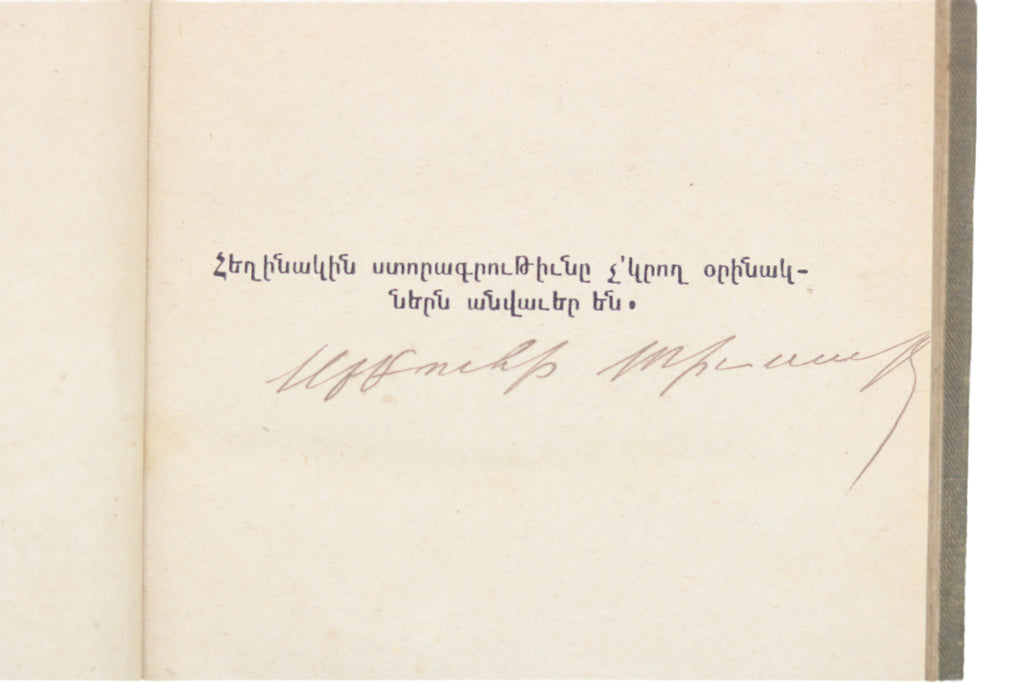 Հեղինակին ստորագրութիւնը չ՚կրող օրինակ-
ներն անվաւեր են.